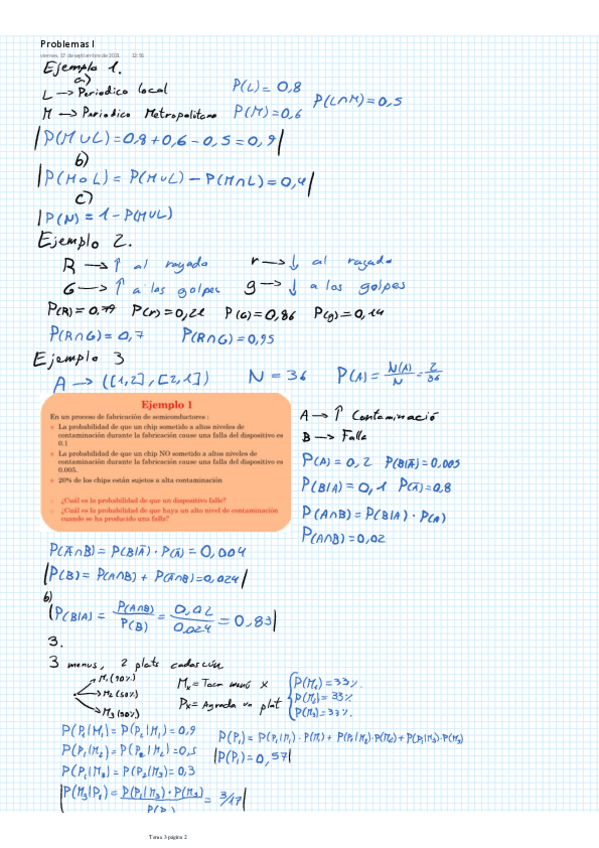 Problemas I
viernes, 17 de septiembre de 2021 12:51
Ejemplo 1.
a)
L → Periodico local P(L) = 0,8
M → Periodico Metropolitano P(M) = 0,6 P(L∩M) = 0,5
|P(M∪L) = 0,8 + 0,6 - 0,5 = 0,9|
b)
|P(M o L) = P(M∪L) - P(M∩L) = 0,4|
c)
|P(N) = 1 - P(M∪L)
Ejemplo 2.
R → ↑ al rayado r → ↓ al rayado
G → ↑ a los golpes g → ↓ a los golpes
P(R) = 0,79 P(r) = 0,21 P(G) = 0,86 P(g) = 0,14
P(R∩G) = 0,7 P(R∩G) = 0,95
Ejemplo 3
A → ([1,2], [2,1]) N = 36 P(A) = N(A)/N = 2/36
Ejemplo 1
En un proceso de fabricación de semiconductores :
La probabilidad de que un chip sometido a altos niveles de
contaminación durante la fabricación cause una falla del dispositivo es
0.1
La probabilidad de que un chip NO sometido a altos niveles de
contaminación durante la fabricación cause una falla del dispositivo es
0.005.
20% de los chips están sujetos a alta contaminación
¿Cuál es la probabilidad de que un dispositivo falle?
¿Cuál es la probabilidad de que haya un alto nivel de contaminación
cuando se ha producido una falla?
A → ↑ Contaminació
B → Falla
P(A) = 0,2 P(B|Ā) = 0,005
P(B|A) = 0,1 P(Ā) = 0,8
P(A∩B) = P(B|A) · P(A)
P(A∩B) = 0,02
P(Ā∩B) = P(B|Ā) · P(Ā) = 0,004
|P(B) = P(A∩B) + P(Ā∩B) = 0,024|
b)
|P(B|A) = P(A∩B)/P(B) = 0,02/0,024 = 0,83|
3.
3 menus, 2 plats cadascún
M₁ (90%)
M₂ (50%)
M₃ (30%)
Mₓ = Toca menú x
Pₓ = Agrada un plat
P(M₁) = 33%.
P(M₂) = 33%
P(M₃) = 33%.
P(P₁|M₁) = P(P₂|M₁) = 0,9
P(P₁|M₂) = P(P₂|M₂) = 0,5
P(P₁|M₃) = P(P₂|M₃) = 0,3
P(P₁) = P(P₁|M₁) · P(M₁) + P(P₁|M₂) · P(M₂) + P(P₁|M₃) · P(M₃)
|P(P₁) = 0,57|
|P(M₃|P₁) = P(P₁|M₃) · P(M₃)/P(P₁) = 3/17|
Tema 3 página 2